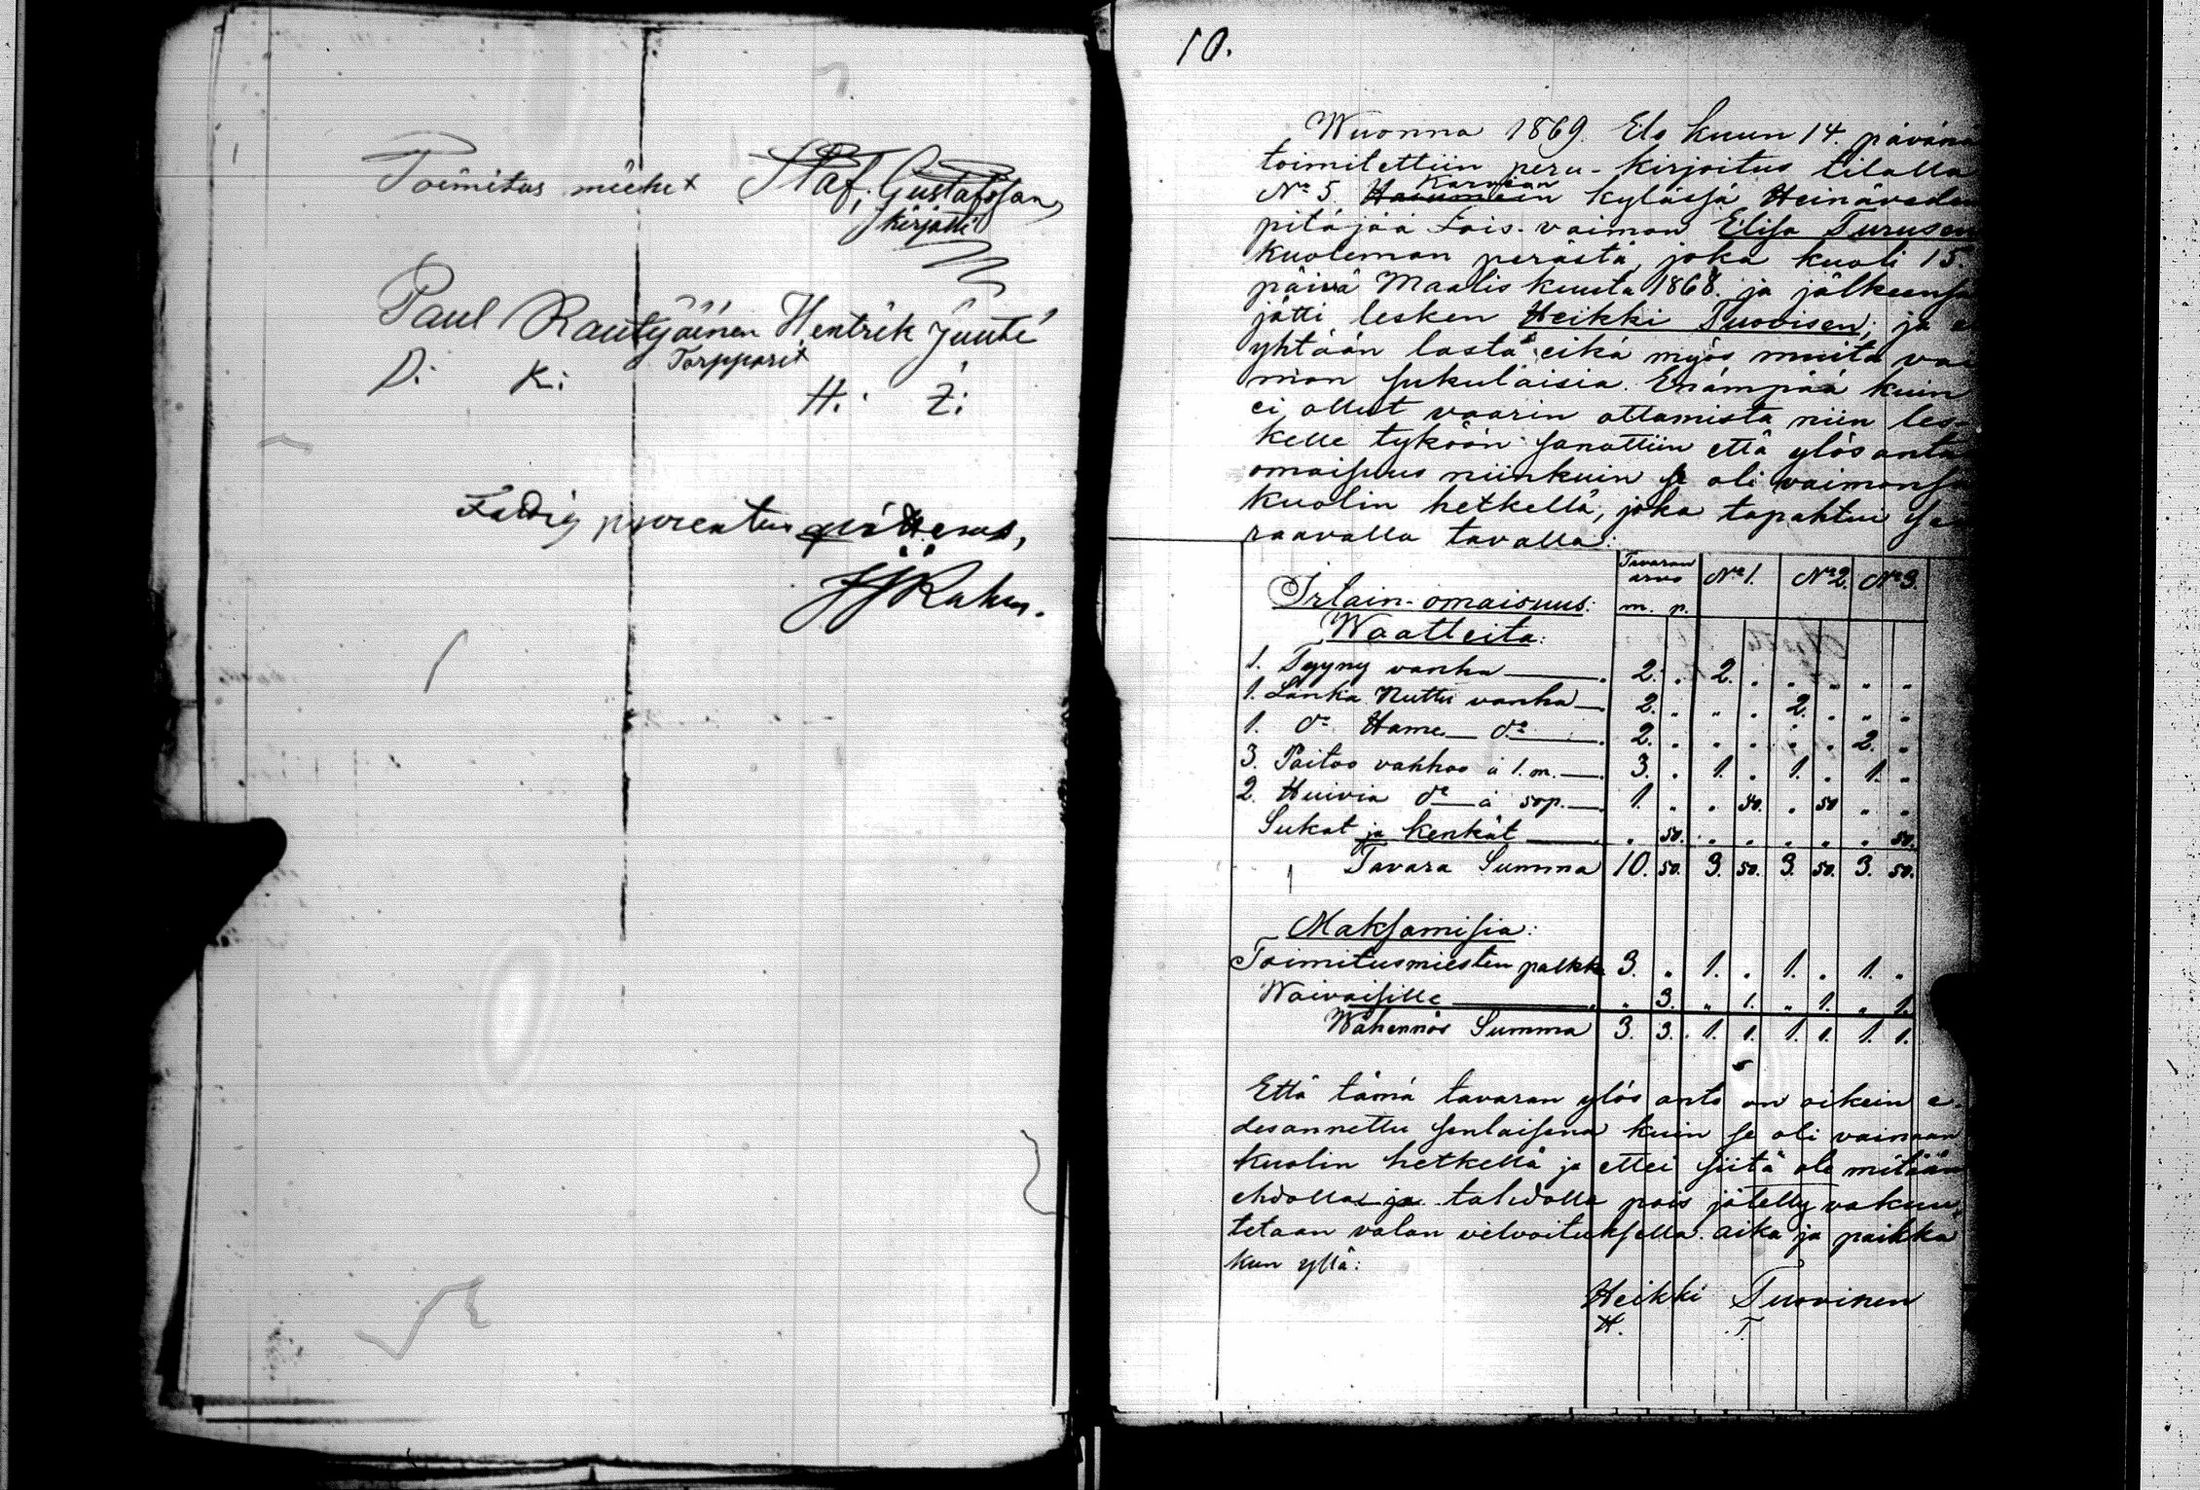 Toimitus miehet Staf. Gustafsson,
kirjotti
Paul Rautijäinen Hentrik Juuti
Torpparit
P. K: H. Z:
Fattig procenten qvitteras,
10.
Wuonna 1869. Elo kuun 14. pävänä
toimitettiin peru-kirjoitus tilalla
No 5. Karvion kylässä Heinäveden
pitäjää Lois-vaimon Elisa Turusen
kuoleman perästä, joka kuoli 15.
päivä Maalis kuuta 1868. ja jälkeensä
jätti lesken Heikki Tuovisen; ja ei
yhtään lasta eikä myös muita vai
mon sukulaisia. Enämpää kuin
ei ollut vaarin ottamista niin les-
kelle tyköön sanottiin että ylös antaa
omaisuus niinkuin se oli vaimonsa
kuolin hetkellä, joka tapahtui seu
raavalla tavalla:
Tavaran
arvo No 1. No 2. No 3.
Irtain-omaisuus: m. p.
Waatteita:
1. Tyyny vanha 2. „ 2. „ „ „ „ „
1. Lanka Nuttu vanha 2. „ „ „ 2. „ „ „
1. do Hame do 2. „ „ „ „ „ 2. „
3. Paitoo vanhoo á 1. m. 3. „ 1. „ 1. „ 1. „
2. Huivia do á 50 p. 1. „ „ 50. „ 50 „ „
Sukat ja kenkät „ 50. „ „ „ „ „ 50.
Tavara Summa 10. 50. 3. 50. 3. 50. 3. 50.
Maksamisia:
Toimitusmiesten palkka 3. „ 1. „ 1. „ 1. „
Waivaisille „ 3. „ 1. „ 1. „ 1.
Wähennös Summa 3. 3. 1. 1. 1. 1. 1. 1.
Että tämä tavaran ylös anto on oikein e-
desannettu senlaisena kuin se oli vainaan
kuolin hetkellä ja ettei siitä ole mitään
ehdolla ja tahdolla pois jätetty vakuu-
tetaan valan velvoituksella. aika ja paikka
kun yllä:
Heikki Tuovinen
H. T.